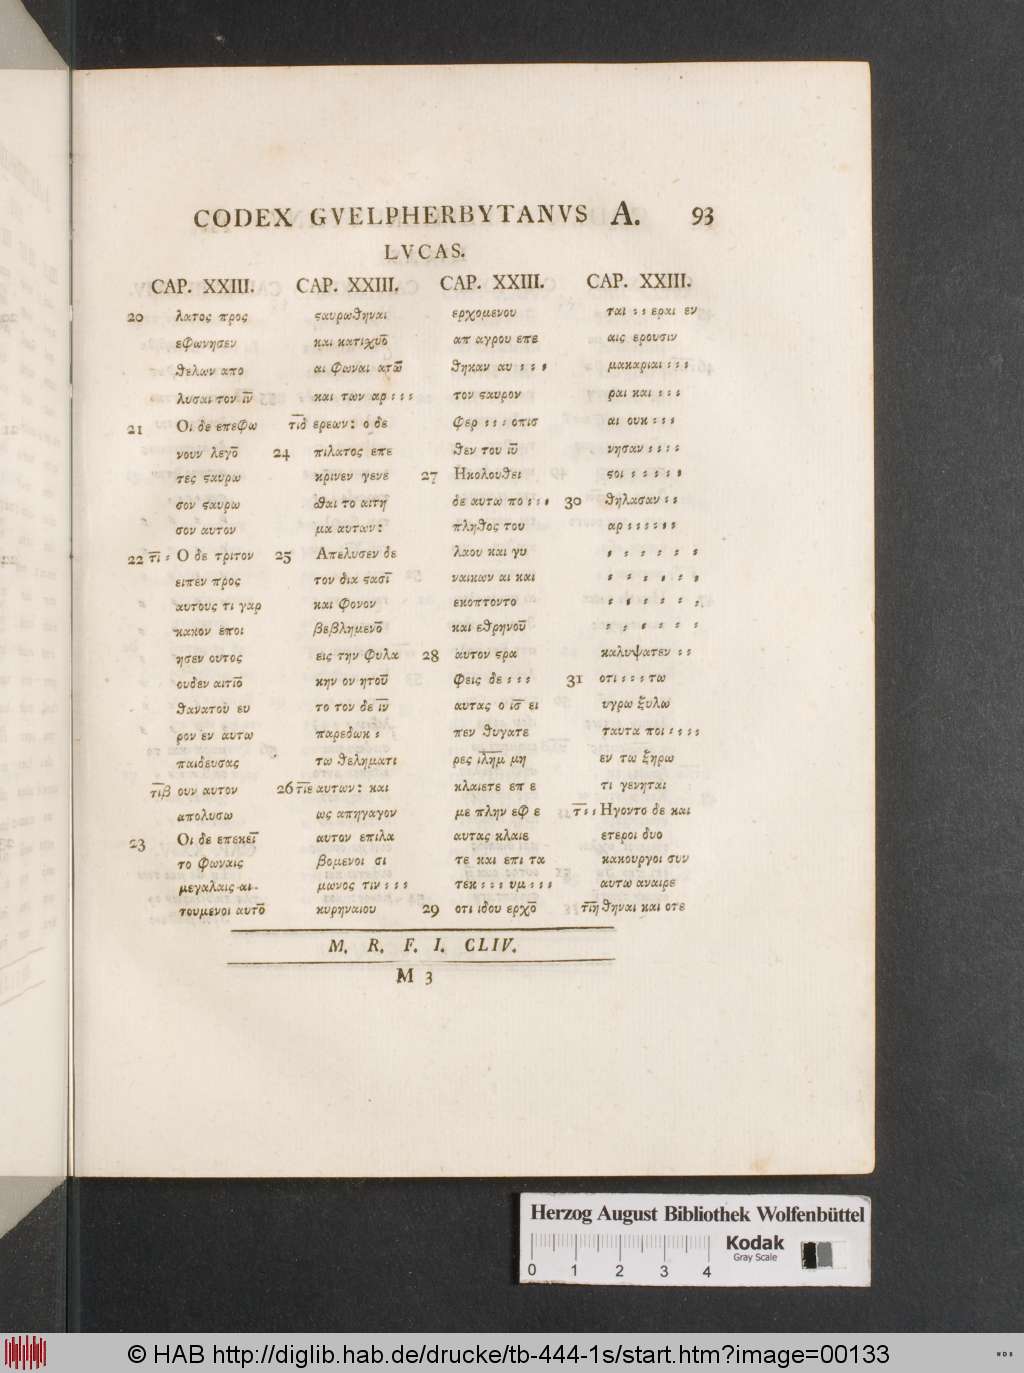 CODEX GVELPHERBYTANVS A. 93
LVCAS.
CAP. XXIII.
20 λατος προς
εφωνησεν
θελων απο
λυσαι τον ιν̅
21 Οι δε επεφω
νουν λεγο̅
τες ϛαυρω
σον ϛαυρω
σον αυτον
22 τι̅ : Ο δε τριτον
ειπεν προς
αυτους τι γαρ
κακον εποι
ησεν ουτος
ουδεν αιτιο̅
θανατου ευ
ρον εν αυτω
παιδευσας
τιβ̅ ουν αυτον
απολυσω
23 Οι δε επεκει̅
το φωναις
μεγαλαις αι
τουμενοι αυτο̅
CAP. XXIII.
ϛαυρωθηναι
και κατιχυο̅
αι φωναι ατω̅
και των αρ : : :
τιδ̅ ερεων: ο δε
24 πιλατος επε
κρινεν γενε
ϑαι το αιτη
μα αυτων:
25 Απελυσεν δε
τον δια ϛασι̅
και φονον
βεβλημενο̅
εις την φυλα
κην ον ητου̅
το τον δε ιν̅
παρεδωκ :
τω θεληματι
26 τιε̅ αυτων: και
ως απηγαγον
αυτον επιλα
βομενοι σι
μωνος τιν : : :
κυρηναιου
CAP. XXIII.
ερχομενου
απ αγρου επε
θηκαν αυ : : :
τον ϛαυρον
φερ : : : οπισ
θεν του ιυ̅
27 Ηκολουθει
δε αυτω πο : : :
πληθος του
λαου και γυ
ναικων αι και
εκοπτοντο
και εθρηνου̅
28 αυτον ϛρα
φεις δε : : :
αυτας ο ισ̅ ει
πεν θυγατε
ρες ιλημ̅ μη
κλαιετε επ ε
με πλην εφ ε
αυτας κλαιε
τε και επι τα
τεκ : : : υμ : : :
29 οτι ιδου ερχο̅
CAP. XXIII.
ται : : εραι εν
αις ερουσιν
μακαριαι : : :
ραι και : : :
αι ουκ : : :
νησαν : : : :
ϛοι : : : : : :
30 θηλασαν : :
αρ : : : : : :
: : : : : :
: : : : : :
: : : : : :
: : : : : :
καλυψατεν : :
31 οτι : : : τω
υγρω ξυλω
ταυτα ποι : : : :
εν τω ξηρω
τι γενηται
τ̅ : : Ηγοντο δε και
ετεροι δυο
κακουργοι συν
αυτω αναιρε
τιη̅ θηναι και οτε
M. R. F. I. CLIV.
M 3
Herzog August Bibliothek Wolfenbüttel
Kodak
Gray Scale
0 1 2 3 4
© HAB http://diglib.hab.de/drucke/tb-444-1s/start.htm?image=00133